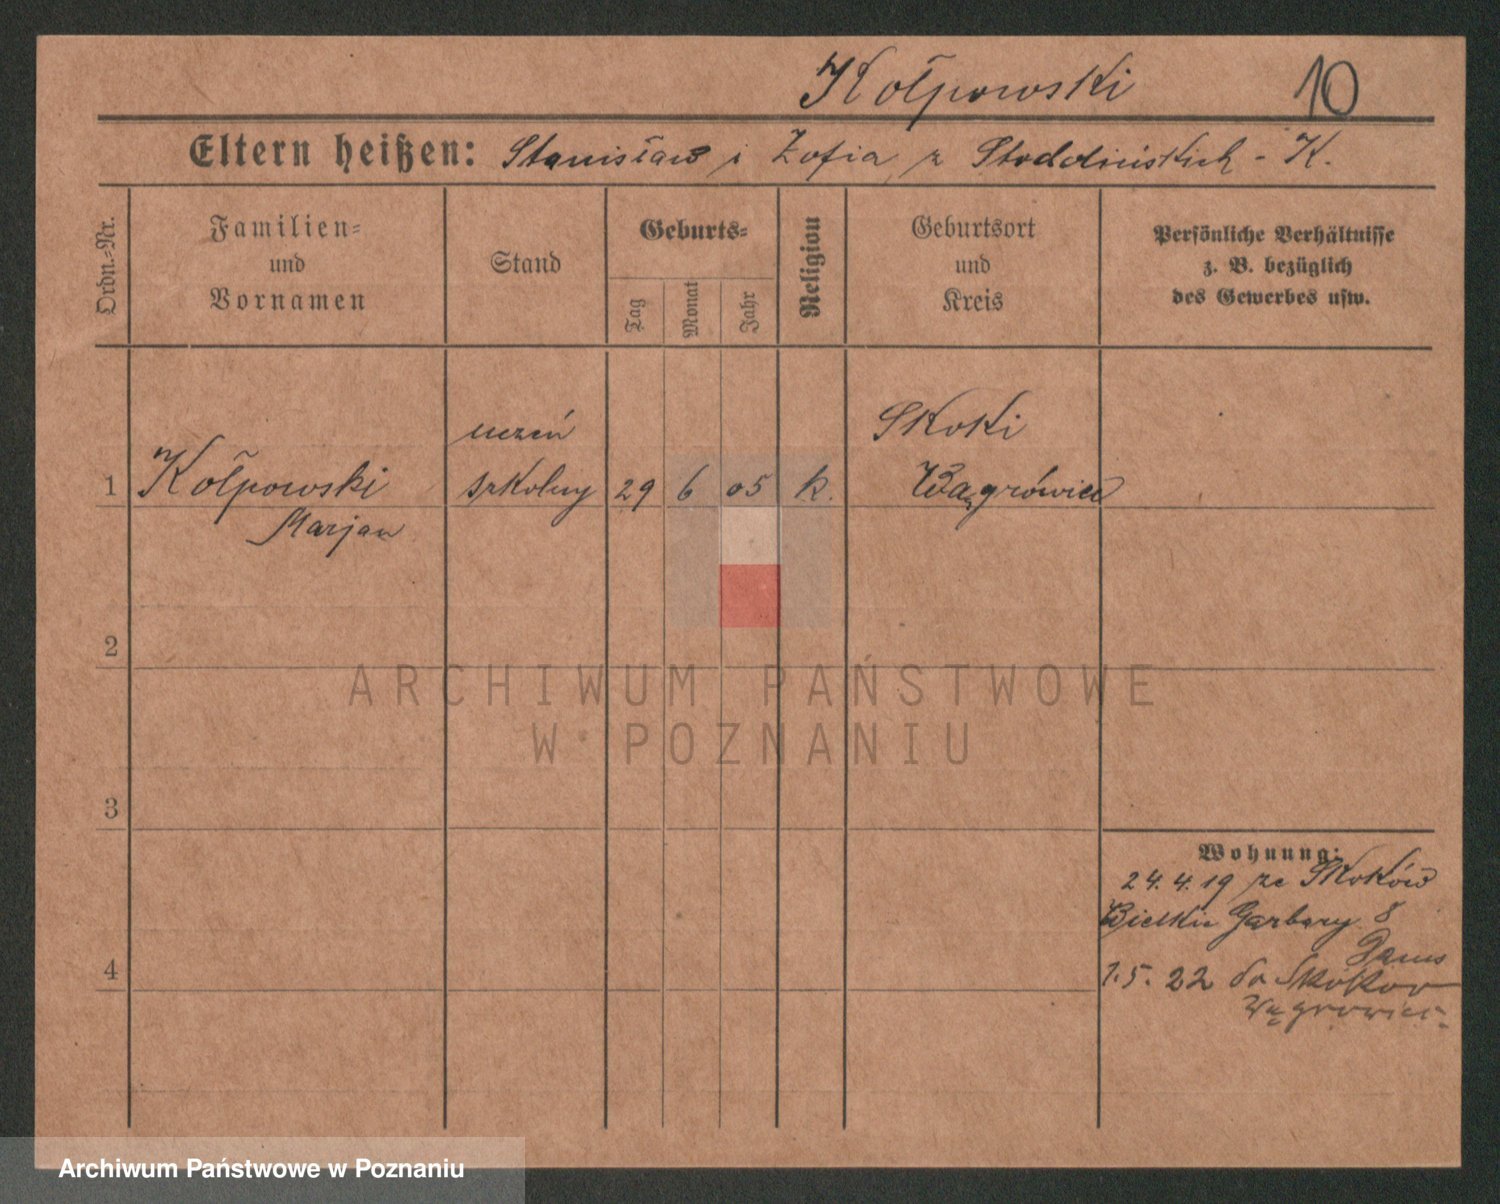 Kołpowski 10
Eltern heißen: Stanisław i Zofia z Stodolińskich - K.
Ordn.-Nr.
Familien-
und
Vornamen
Stand
Geburts-
Tag
Monat
Jahr
Religion
Geburtsort
und
Kreis
Persönliche Verhältnisse
z. B. bezüglich
des Gewerbes usw.
1
Kołpowski
Marjan
uczeń
szkolny
29
6
05
k.
Skoki
Wągrówiec
2
ARCHIWUM PAŃSTWOWE
W POZNANIU
3
4
Wohnung:
24.4.19 ze Skoków
Garbary 8
1.5.22 do Skokow
Wągrowiec
Archiwum Państwowe w Poznaniu